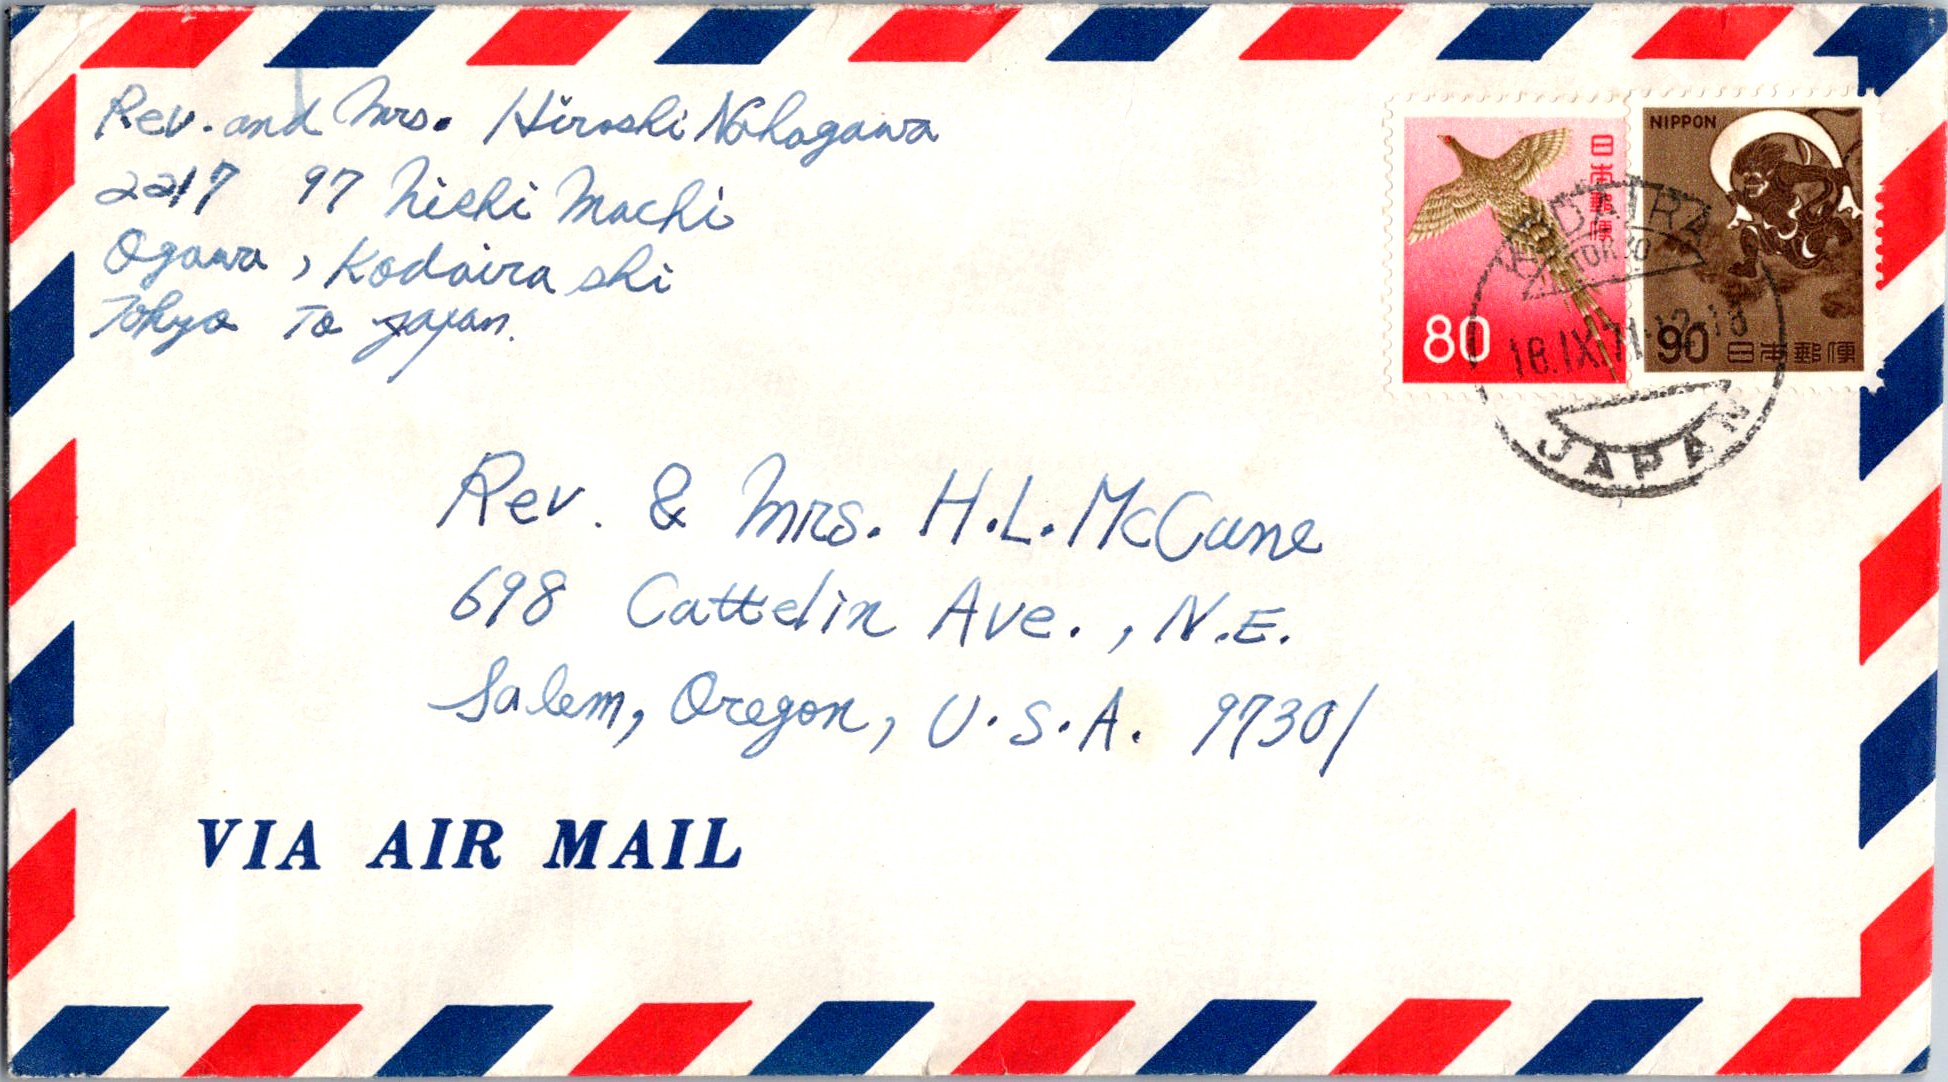 Rev. and Mrs. Hiroshi Nakagawa
2217 97 Nishi Machi
Ogawa, Kodaira shi
Tokyo To Japan.
NIPPON
日本郵便
80
90 日本郵便
KODAIRA
TOKYO
18.IX.71.12-18
JAPAN
Rev. & Mrs. H.L. McCune
698 Cattelin Ave., N.E.
Salem, Oregon, U.S.A. 97301
VIA AIR MAIL